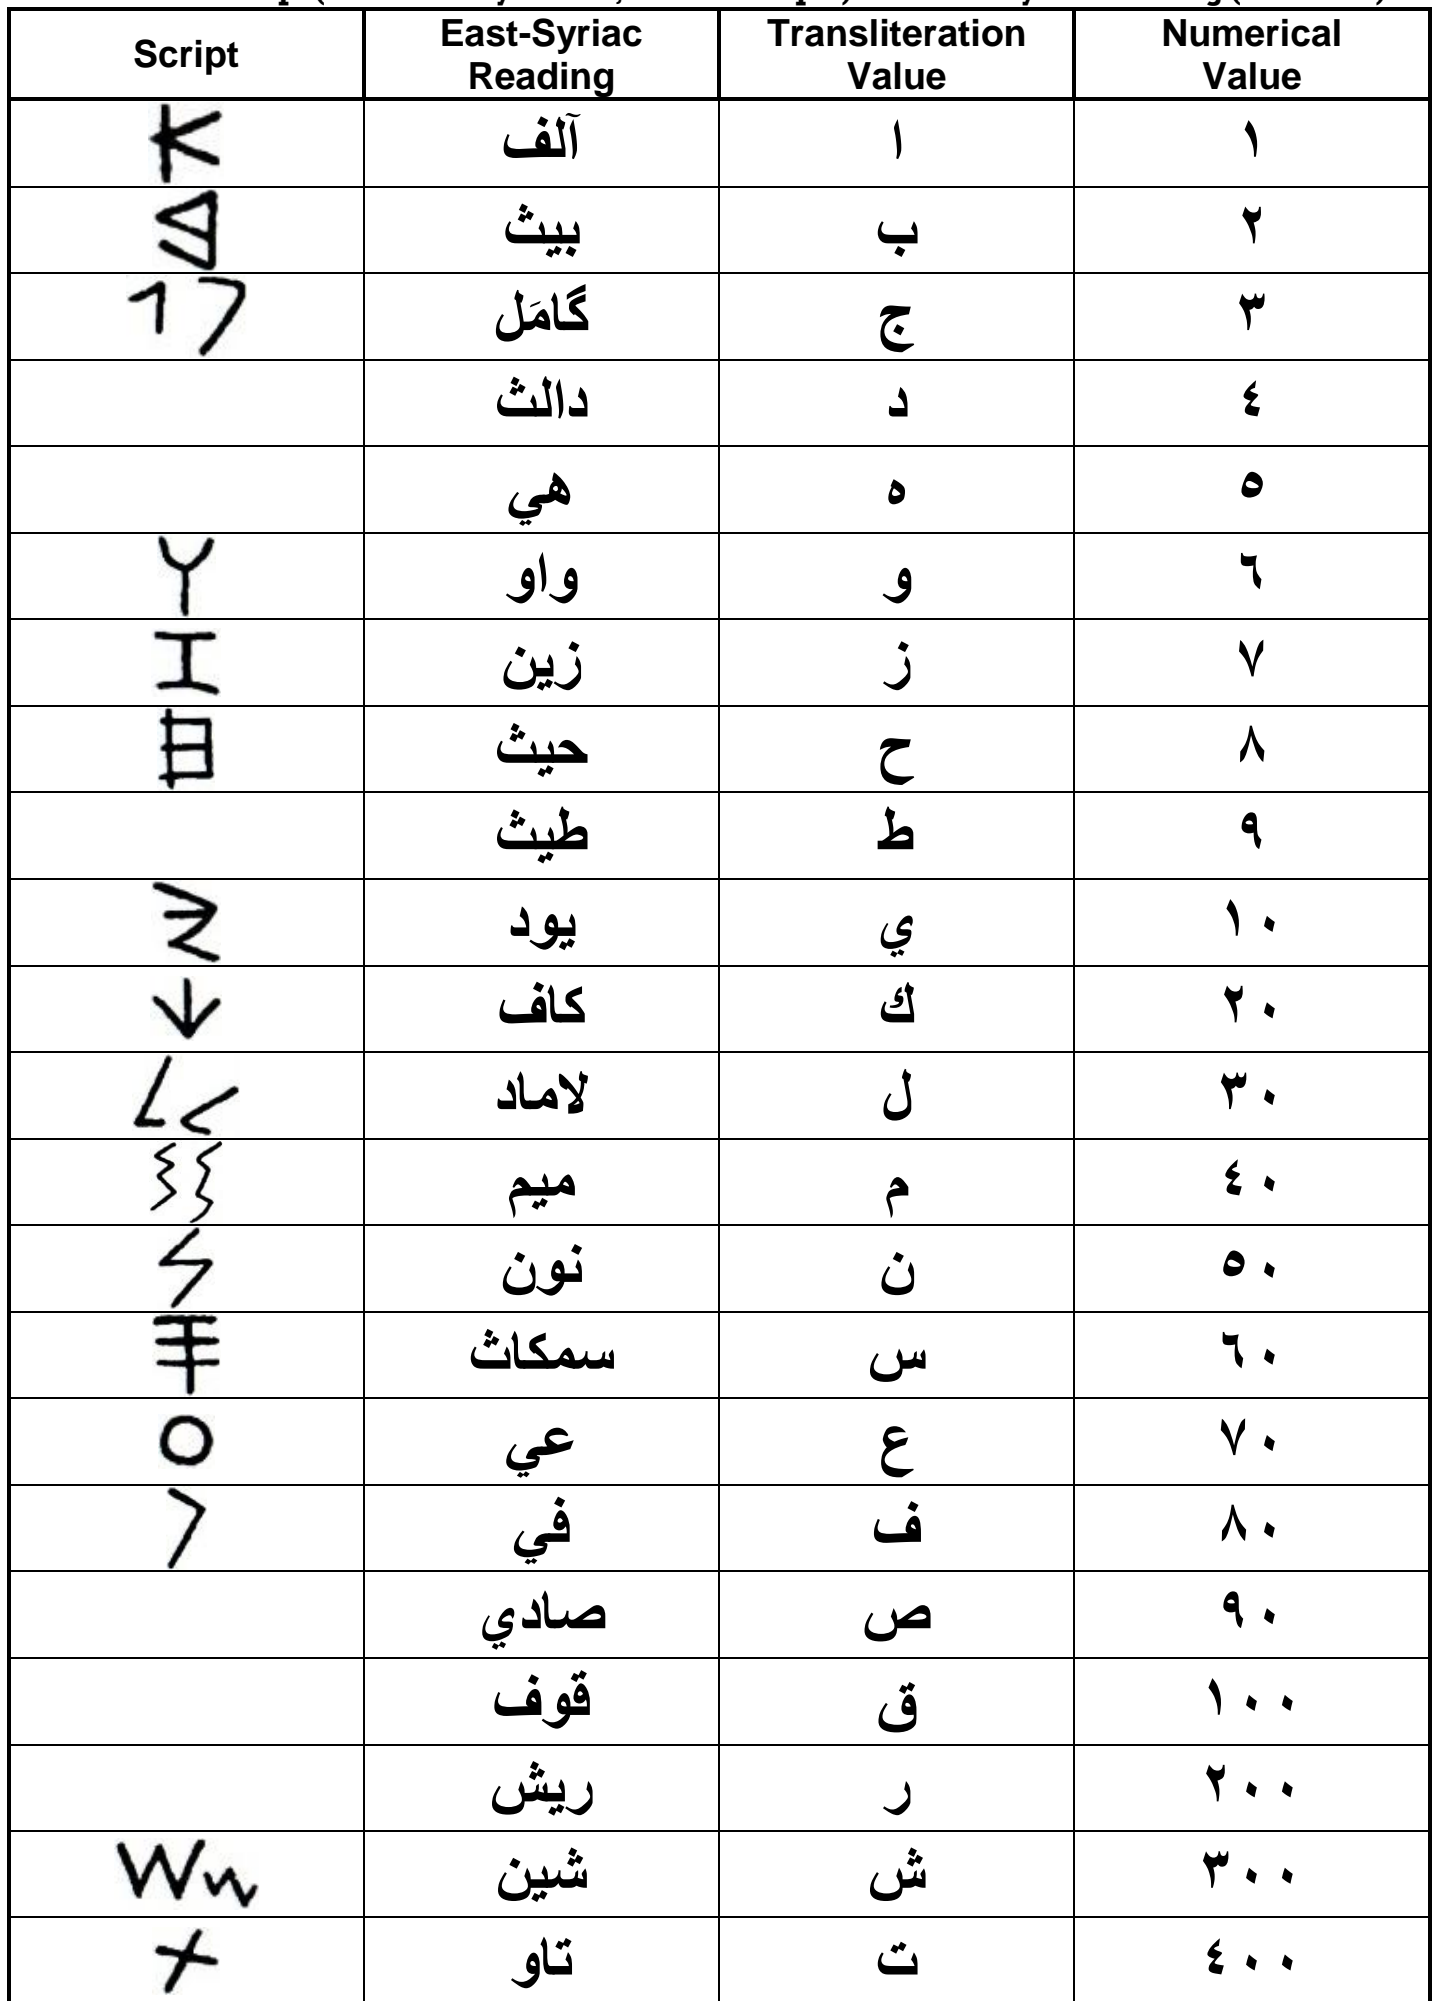 Script East-Syriac Reading Transliteration Value Numerical Value
𐤀 آلف ا ١
𐤁 بيث ب ٢
𐤂 گامَل ج ٣
دالث د ٤
هي ه ٥
𐤅 واو و ٦
𐤆 زين ز ٧
𐤇 حيث ح ٨
طيث ط ٩
𐤉 يود ي ١٠
𐤊 كاف ك ٢٠
𐤋 لاماد ل ٣٠
𐤌 ميم م ٤٠
𐤍 نون ن ٥٠
𐤎 سمكاث س ٦٠
𐤏 عي ع ٧٠
𐤐 في ف ٨٠
صادي ص ٩٠
قوف ق ١٠٠
ريش ر ٢٠٠
𐤔 شين ش ٣٠٠
𐤕 تاو ت ٤٠٠